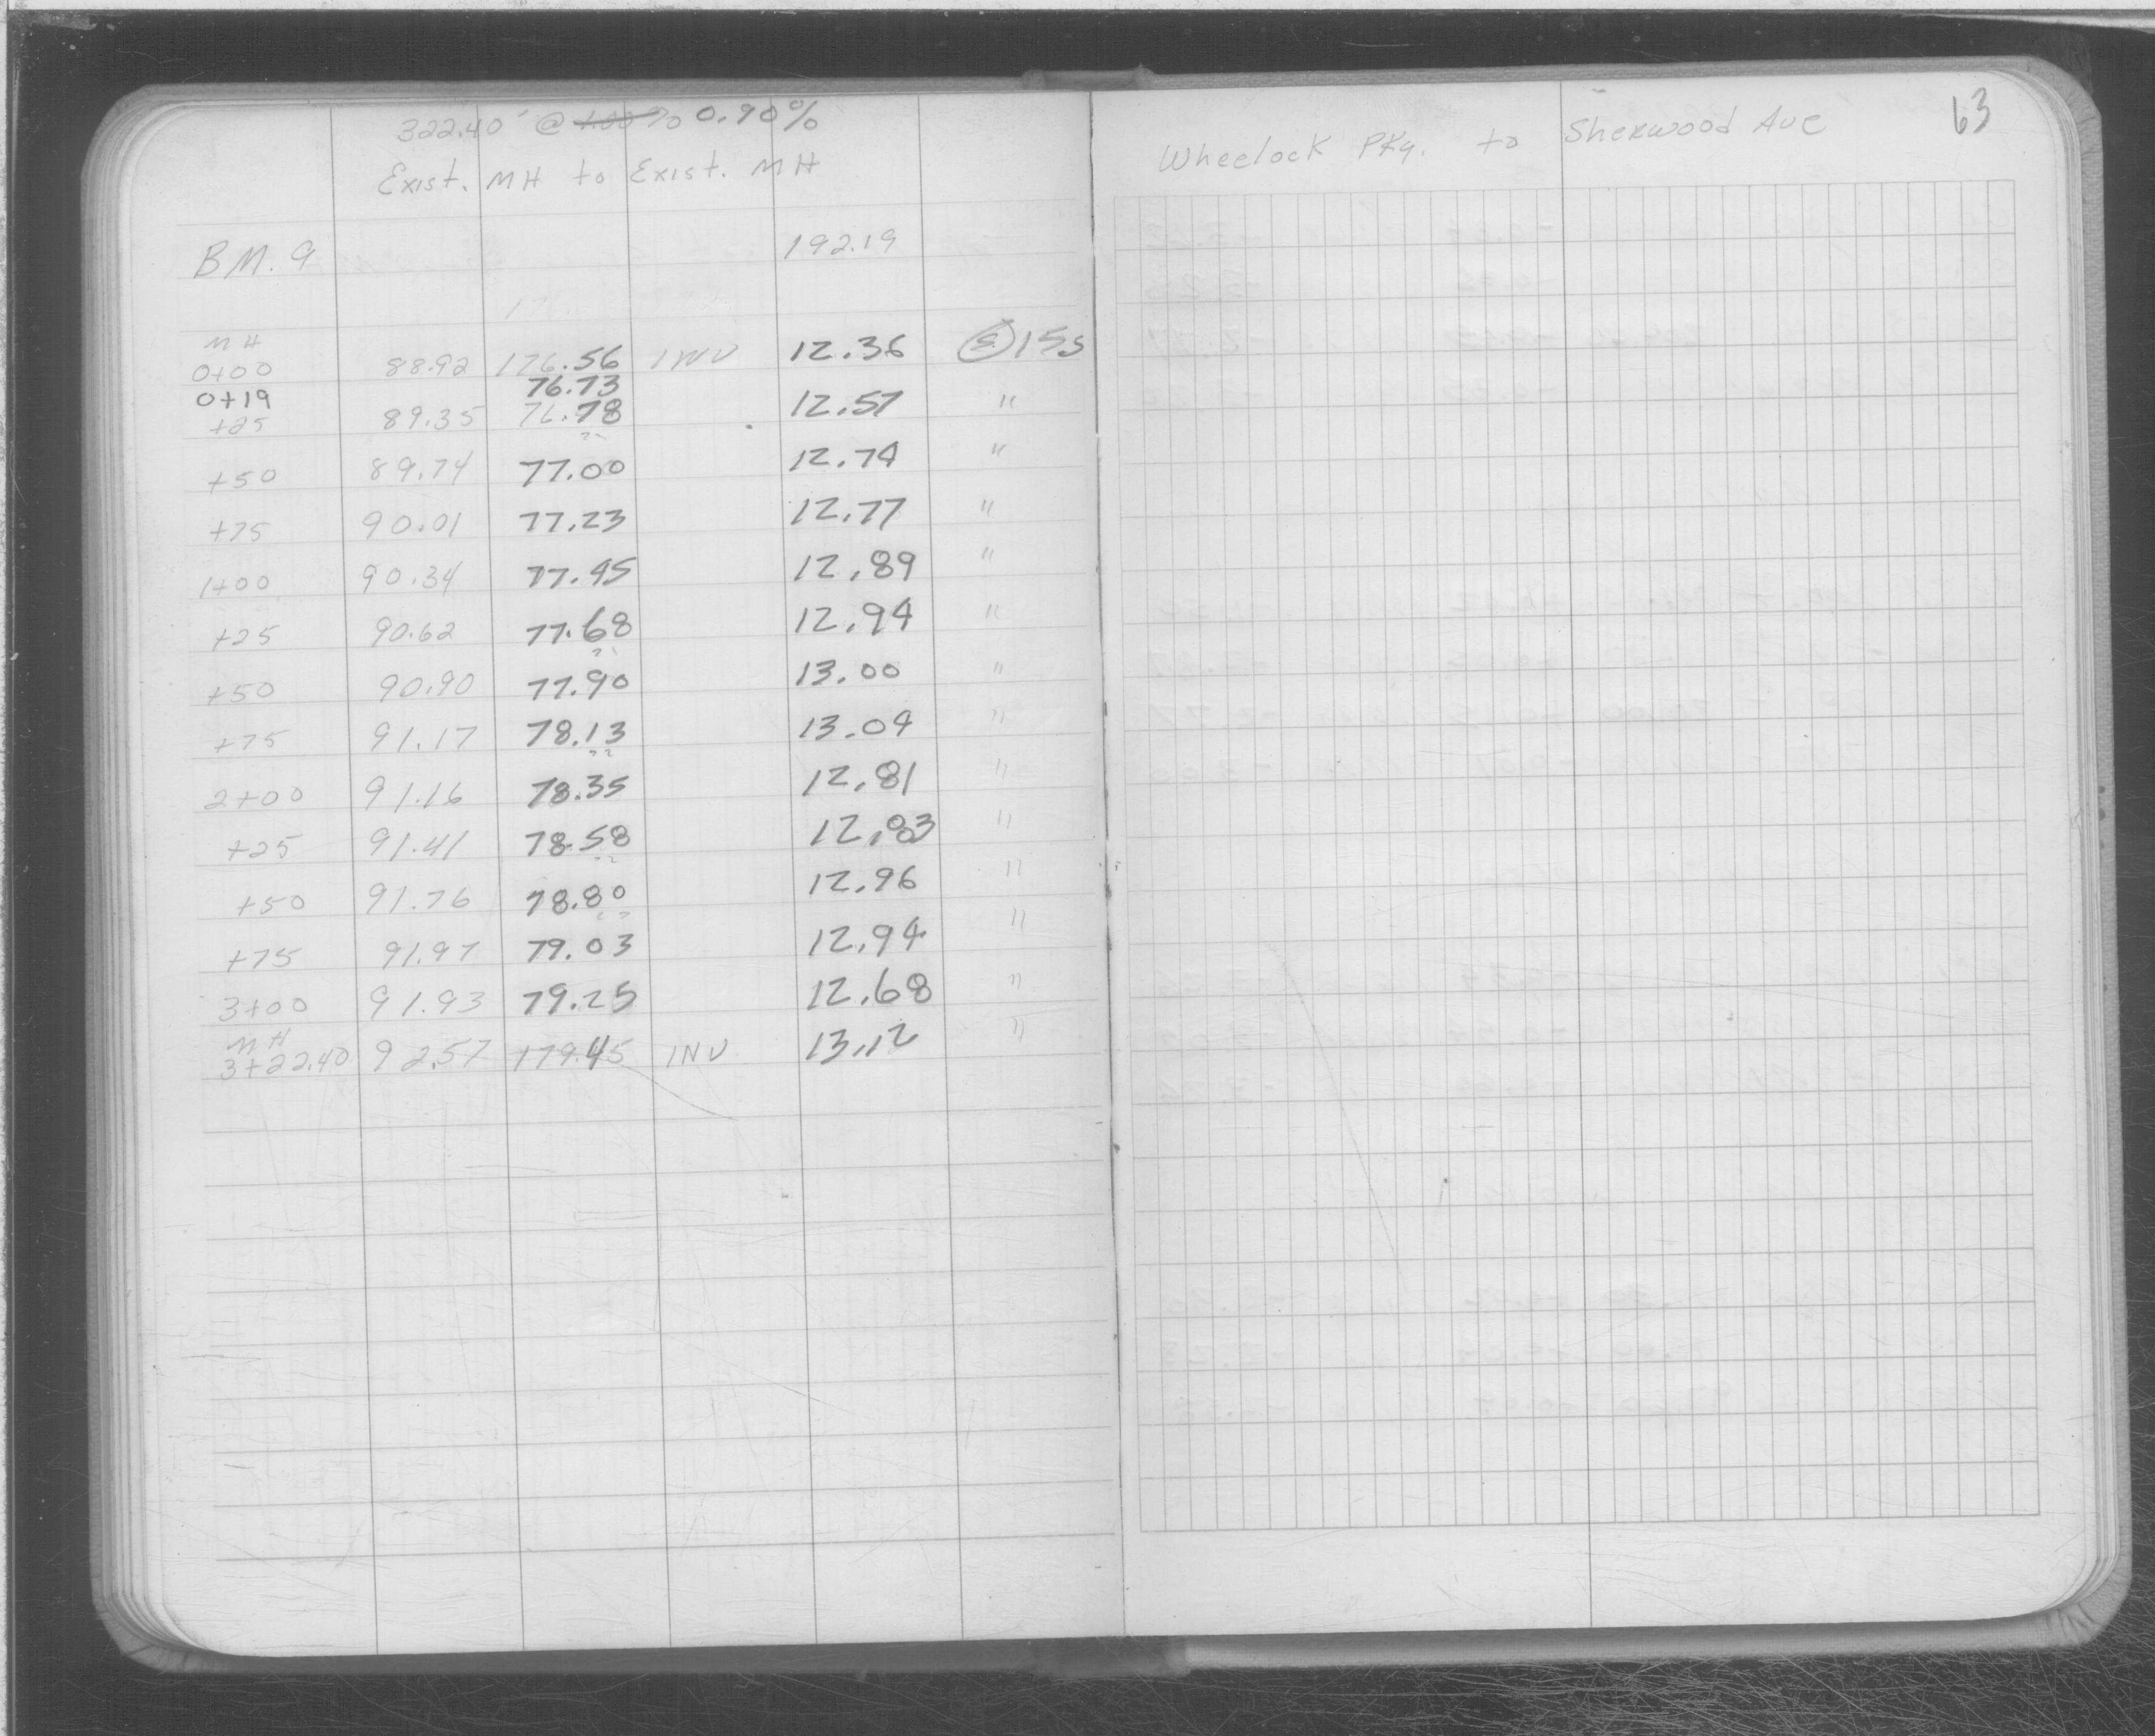 322.40' @ 1.00% 0.90%
Exist. MH to Exist. MH
BM. 9 192.19
MH
0+00 88.92 176.56 INV 12.36 15s
0+19 76.73
+25 89.35 76.78 12.57 "
+50 89.74 77.00 12.74 "
+75 90.01 77.23 12.77 "
1+00 90.34 77.45 12.89 "
+25 90.62 77.68 12.94 "
+50 90.90 77.90 13.00 "
+75 91.17 78.13 13.04 "
2+00 91.16 78.35 12.81 "
+25 91.41 78.58 12.83 "
+50 91.76 78.80 12.96 "
+75 91.97 79.03 12.94 "
3+00 91.93 79.25 12.68 "
MH
3+22.40 92.57 179.45 INV 13.12 "
63
Wheelock PKy. to Sherwood Ave